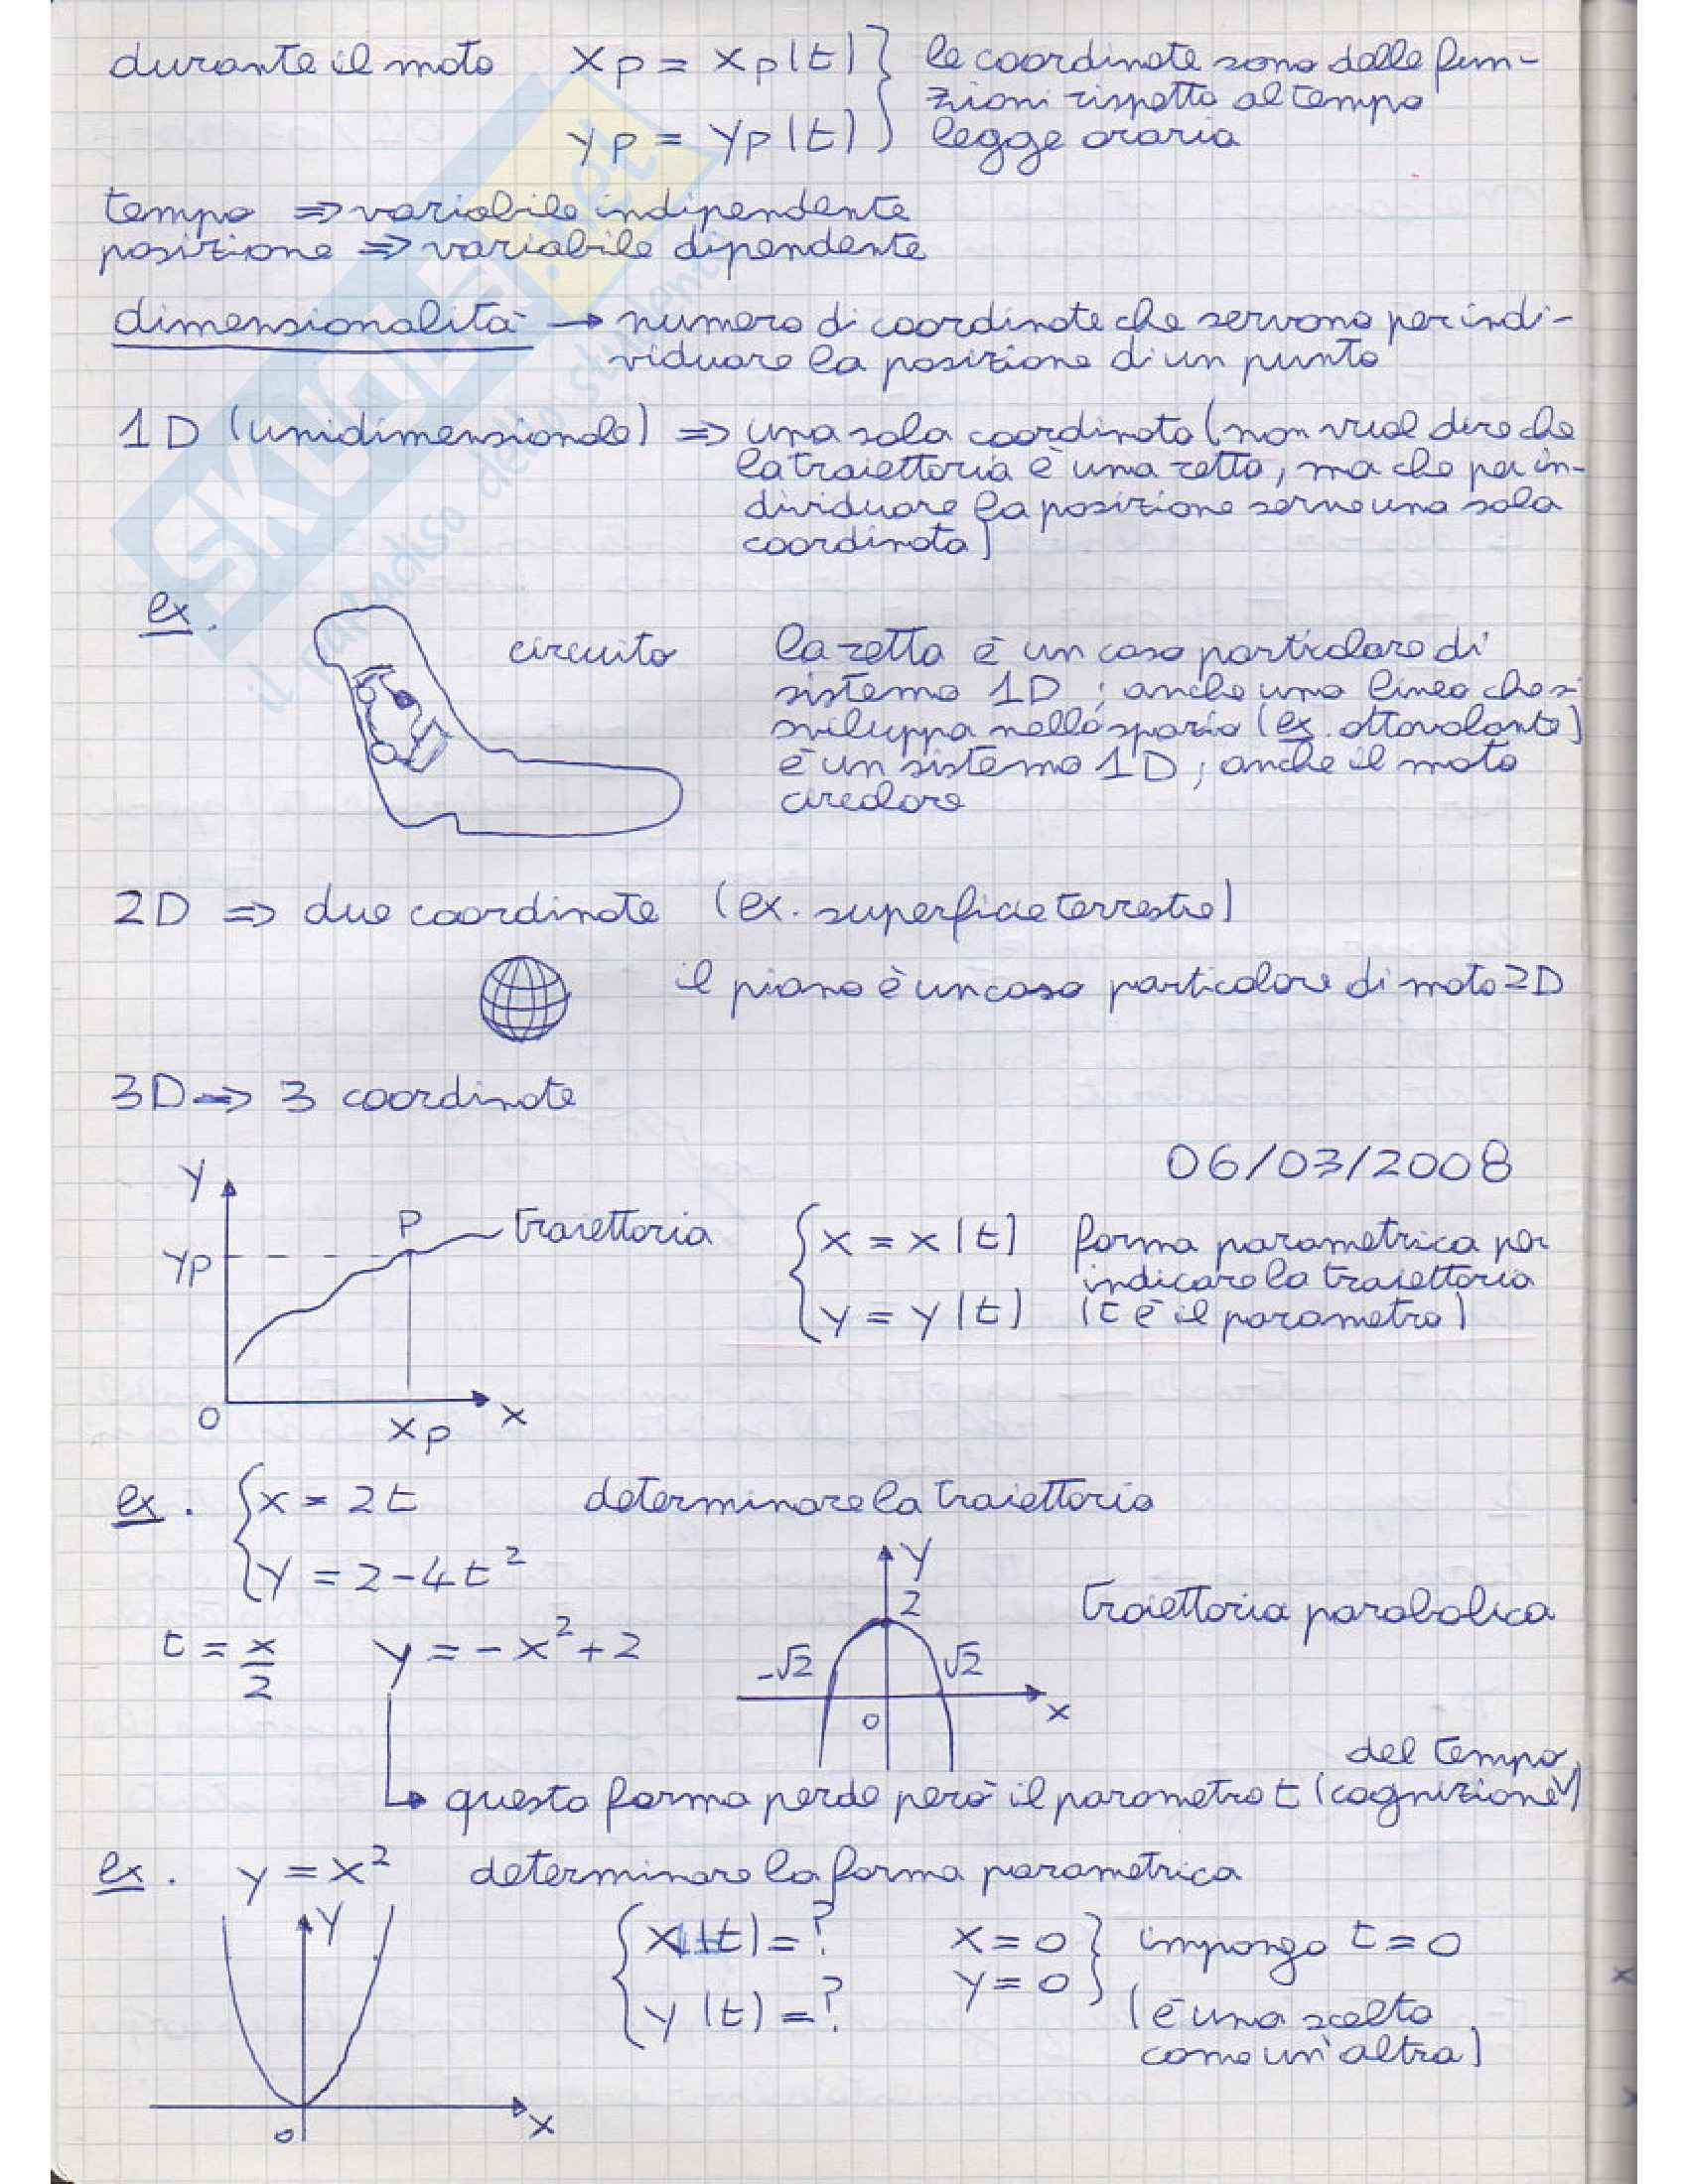 durante il moto xp = xp(t) } le coordinate sono delle fun-
zioni rispetto al tempo
yp = yp(t) } legge oraria
tempo => variabile indipendente
posizione => variabile dipendente
dimensionalità → numero di coordinate che servono per indi-
viduare la posizione di un punto
1D (unidimensionale) => una sola coordinata (non vuol dire che
la traiettoria è una retta, ma che per in-
dividuare la posizione serve una sola
coordinata)
ex.
circuito
la retta è un caso particolare di
sistema 1D; anche una linea che si
sviluppa nello spazio (ex. ottovolante)
è un sistema 1D; anche il moto
circolare
2D => due coordinate (ex. superficie terrestre)
il piano è un caso particolare di moto 2D
3D => 3 coordinate
06/03/2008
y
P
traiettoria
yp
O
xp
x
{ x = x(t) forma parametrica per
indicare la traiettoria
y = y(t) (t è il parametro)
ex. { x = 2t determinare la traiettoria
y = 2-4t²
t = x/2 y = -x²+2
y
2
-√2
√2
O
x
traiettoria parabolica
del tempo
questa forma perde però il parametro t (cognizione ∨)
ex. y = x² determinare la forma parametrica
y
O
x
{ x(t) = ? x=0 } impongo t=0
y(t) = ? y=0
(è una scelta
come un'altra)
SKUOLA.net
il paradiso dello studente